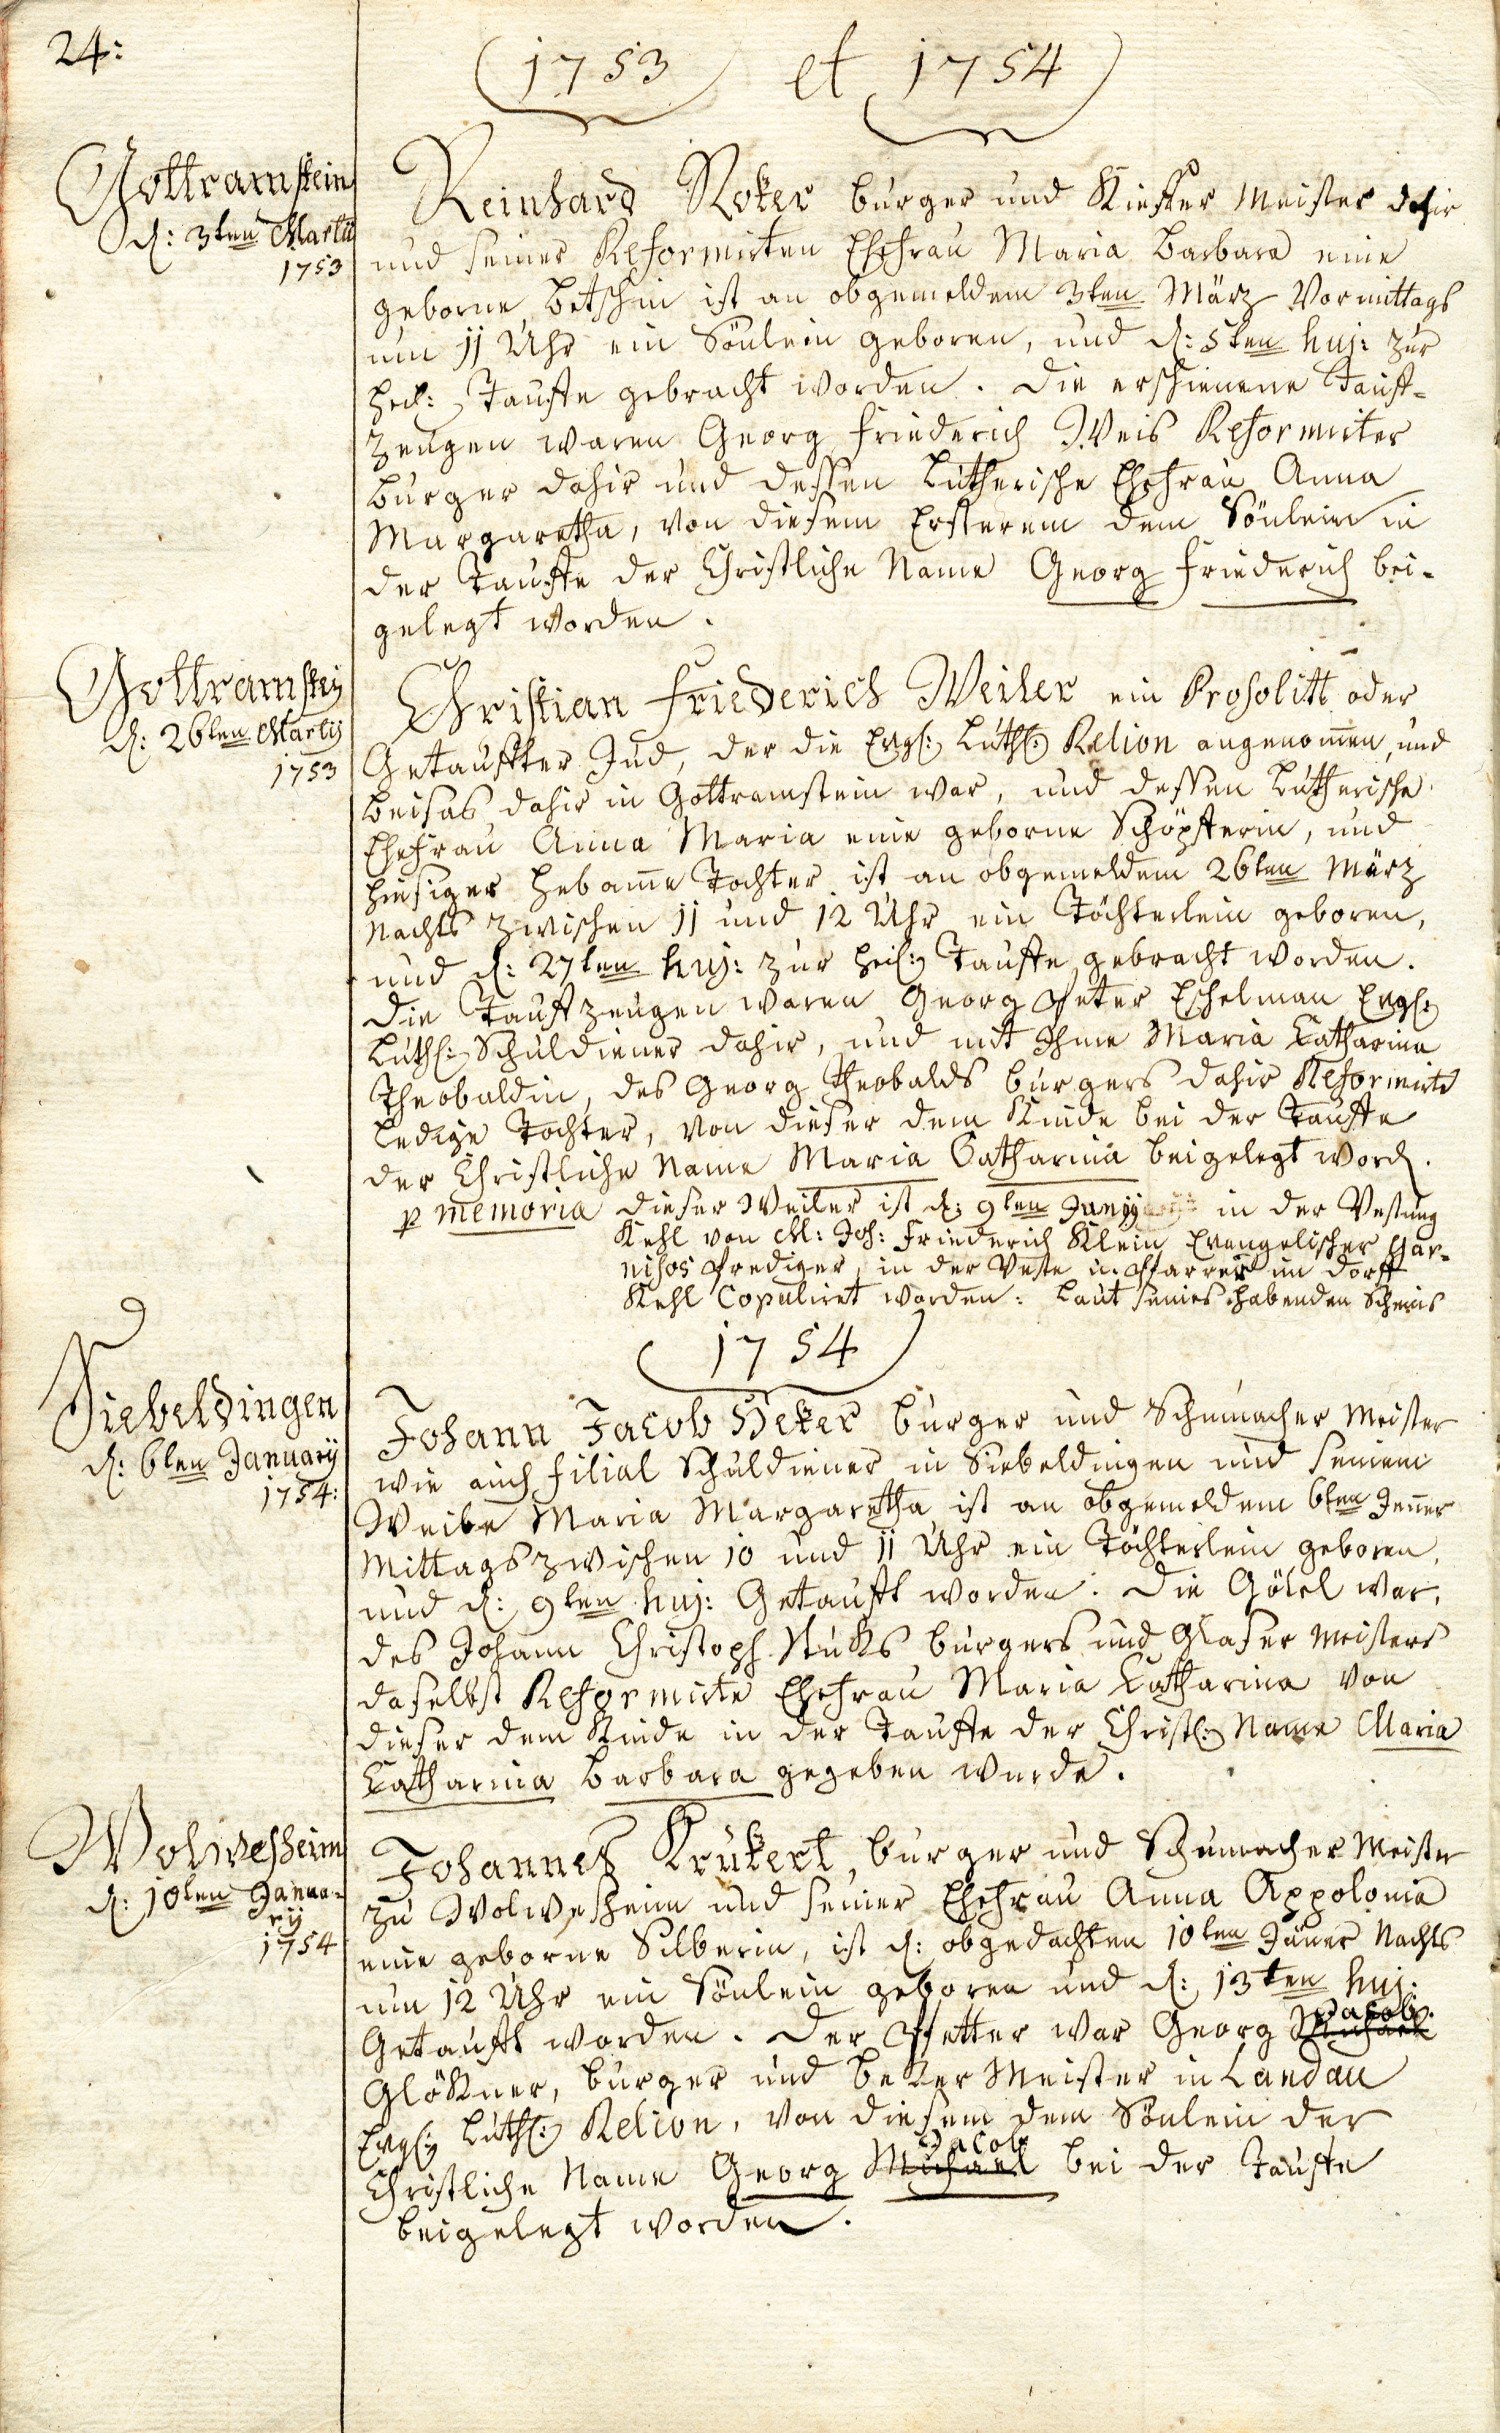 24:
1753 et 1754
Gottramstein
d: 3ten Martii
1753
Reinhard Noker burger und Kieffer Meister dahir
und seiner Reformirten Ehefrau Maria Barbara eine
geborne Betschin ist an obgemeldem 3ten März Vormittags
um 11 Uhr ein Sönlein geboren, und d: 5ten huj: zur
heil: Tauffe gebracht worden. Die erschienene Tauff-
zeugen waren Georg Friederich Weis Reformirter
burger dahir und dessen Lutherische Ehefrau Anna
Margaretha, von diesem Ersterem dem Sönlein in
der Tauffe der Christliche Name Georg Friederich bei-
gelegt worden.
Gottramstein
d: 26ten Martij
1753
Christian Friederich Weiler ein Prosolitt oder
Getauffter Jud, der die Evgl: Luthl: Relion angenom̄en, und
beisas dahir in Gottramstein war, und dessen Lutherische
Ehefrau Anna Maria eine geborne Schöpfferin, und
hiesiger Hebam̄e Tochter ist an obgemeldem 26ten März
Nachts zwischen 11 und 12 Uhr ein Töchterlein geboren,
und d: 27ten huj: zur heil: Tauffe gebracht worden.
Die Tauffzeugen waren Georg Peter Eschelman Evgl:
Luthl: Schuldiener dahir, und mit Ihme Maria Catharina
Theobaldin, des Georg Theobalds burgers dahir Reformirte
Ledige Tochter, von dieser dem Kinde bei der Tauffe
der Christliche Name Maria Catharina beigelegt word.
p memoria dieser Weiler ist d: 9ten Junij in der Vestung
Kehl von M: Joh: Friederich Klein Evangelischer Gar-
nisos Prediger in der Veste u: Pfarrer im Dorff
Kehl Copuliret worden: Laut seines habenden Scheins
1754
Siebeldingen
d: 6ten Januarij
1754:
Johann Jacob Heker burger und Schumacher Meister
wie auch Filial Schuldiener in Siebeldingen und seinem
Weibe Maria Margaretha ist an obgemeldem 6ten Jen̄er
Mittags zwischen 10 und 11 Uhr ein Töchterlein geboren,
und d: 9ten huj: Getaufft worden: Die Götel war,
des Johann Christoph Stucks burgers und Glaser Meisters
daselbst Reformirte Ehefrau Maria Catharina von
dieser dem Kinde in der Tauffe der Christl: Name Maria
Catharina Barbara gegeben wurde.
Wolmesheim
d: 10ten Janua-
rij
1754
Johannes Krukert, burger und Schumacher Meister
zu Wolmesheim und seiner Ehefrau Anna Appolonia
eine geborne Silberin, ist d: obgedachten 10ten Jäner Nachts
um 12 Uhr ein Sönlein geboren und d: 13ten huj:
Getaufft worden. Der Pfetter war Georg Michael Jacob
Glökner, burger und beker Meister in Landau
Evgl: Luthl: Relion, von diesem dem Sönlein der
Christliche Name Georg Michael Jacob bei der Tauffe
beigelegt worden.